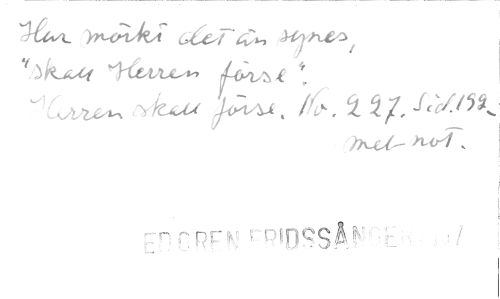 Hur mörkt det än synes,
"skall Herren förse".
Herren skall förse. No. 227. Sid. 192
med not.
EDGREN FRIDSSÅNGER